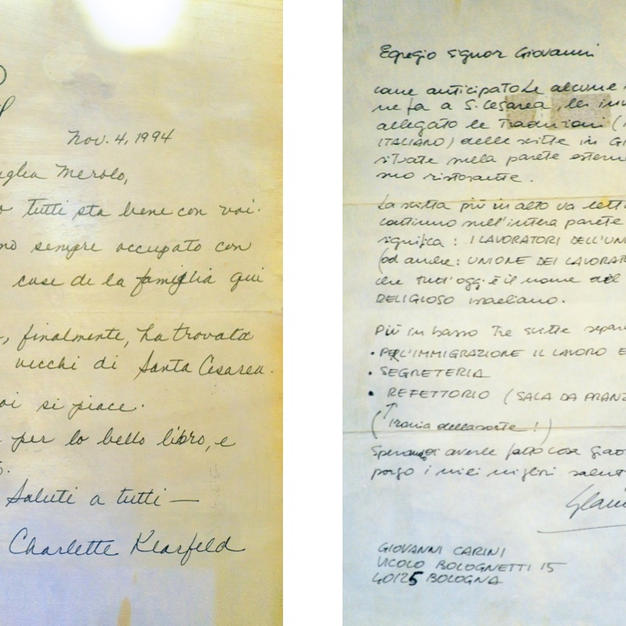 Nov. 4, 1994
Merolo,
tutti sta bene con voi.
sempre occupato con
case de la famiglia qui
, finalmente, ha trovato
vecchi di Santa Cesarea.
si piace.
per lo bello libro, e
Saluti a tutti —
Charlette Klarfeld
Egregio signor Giovanni
come anticipatole alcune
ne fa a S. Cesarea, le
allegato le traduzioni (
ITALIANO) delle scritte in
situate sulla parete
suo ristorante.
La scritta più in alto va
continuo sull'intera parete
significa: I LAVORATORI DELL'
(od anche: UNIONE DEI
che tutt'oggi è il nome del
RELIGIOSO israeliano.
Più in basso tre scritte
• PER L'IMMIGRAZIONE IL LAVORO E
• SEGRETERIA
• REFETTORIO (SALA DA
(Ironia della sorte!)
Sperando averle fatto cosa
porgo i miei migliori
GIOVANNI CARINI
VICOLO BOLOGNETTI 15
40125 BOLOGNA